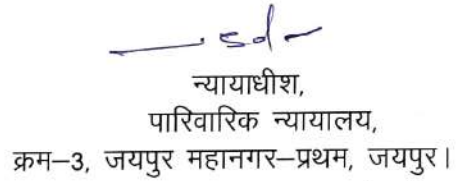 sd
न्यायाधीश,
पारिवारिक न्यायालय,
क्रम–3, जयपुर महानगर–प्रथम, जयपुर।